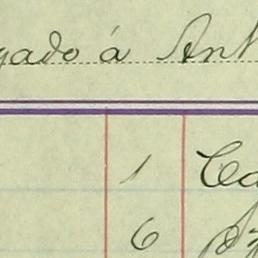 gado á Ant
1 Ca
6